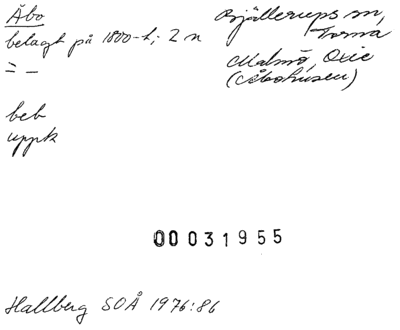 Åbo
belagt på 1800-t; 2 n
= —
Bjällerups sn,
Torna
Malmö, Oxie
(Åbohusen)
beb
uppk
00031955
Hallberg SOÅ 1976:86